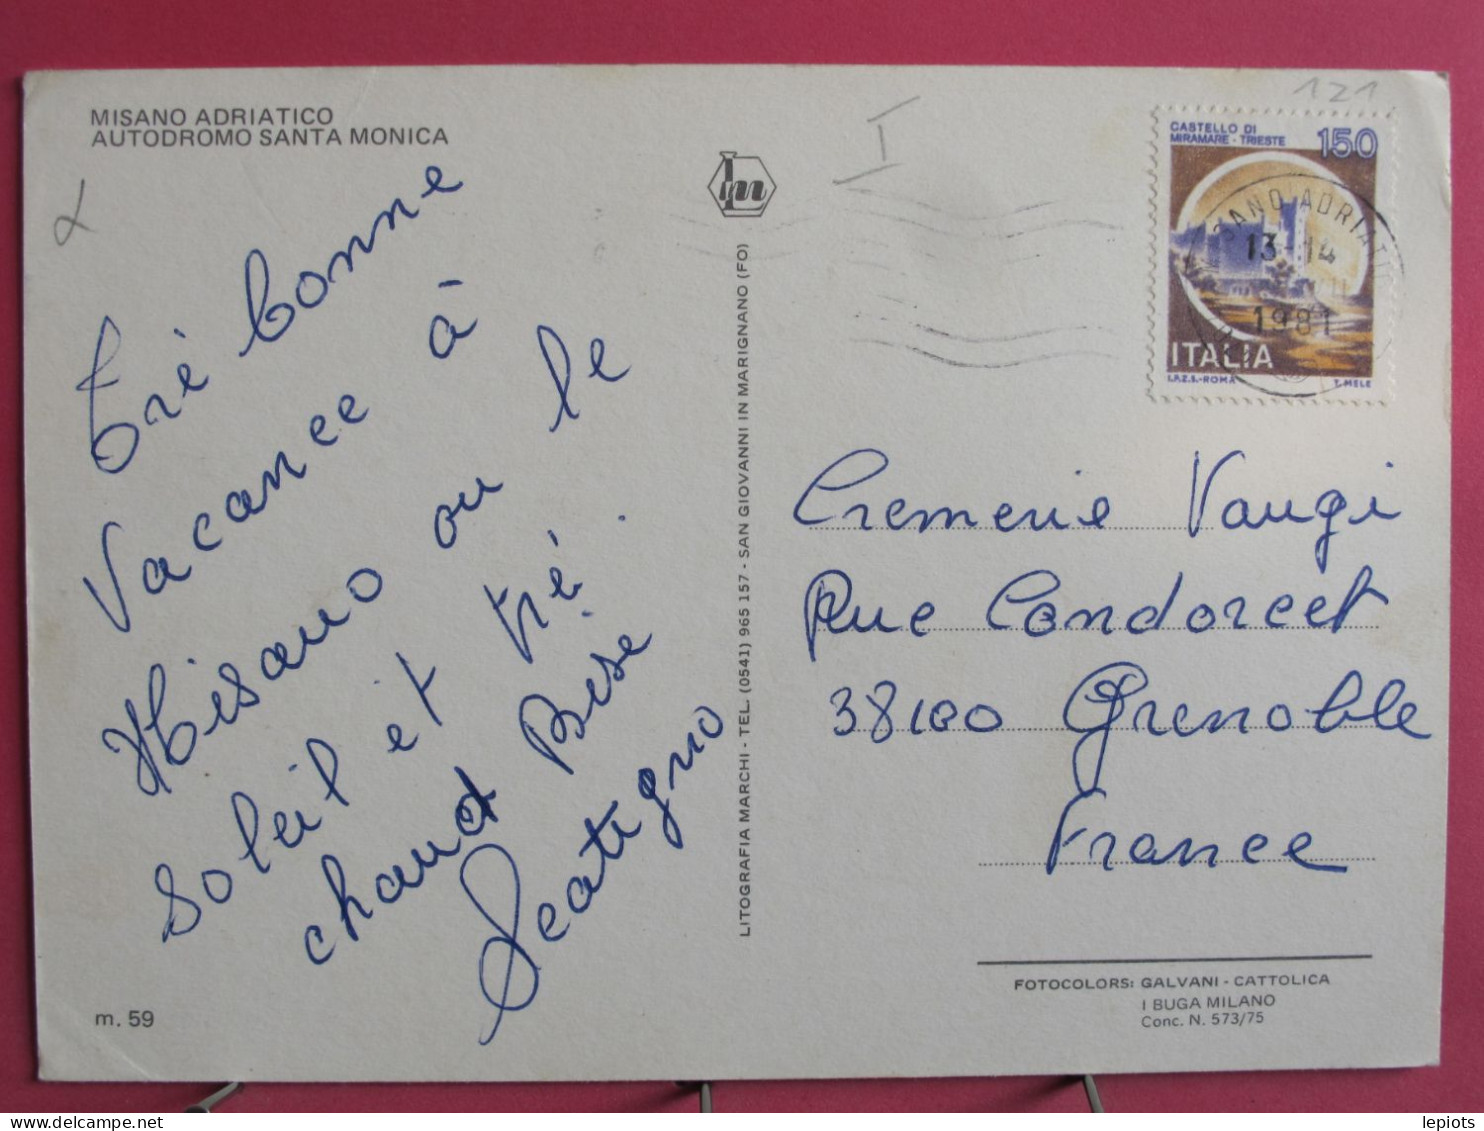 MISANO ADRIATICO
AUTODROMO SANTA MONICA
121
I
CASTELLO DI
MIRAMARE - TRIESTE
150
ITALIA
I.P.Z.S.-ROMA
T. MELE
SANO ADRIATI
13 14
1981
Lm
Tré bonne
Vacancee à
Misano ou le
soleil et tré
chaud Bisé
LITOGRAFIA MARCHI - TEL. (0541) 965 157 - SAN GIOVANNI IN MARIGNANO (FO)
Cremerie Vaugi
Rue Condorcet
38100 Grenoble
France
FOTOCOLORS: GALVANI - CATTOLICA
I BUGA MILANO
Conc. N. 573/75
m. 59
lepiots